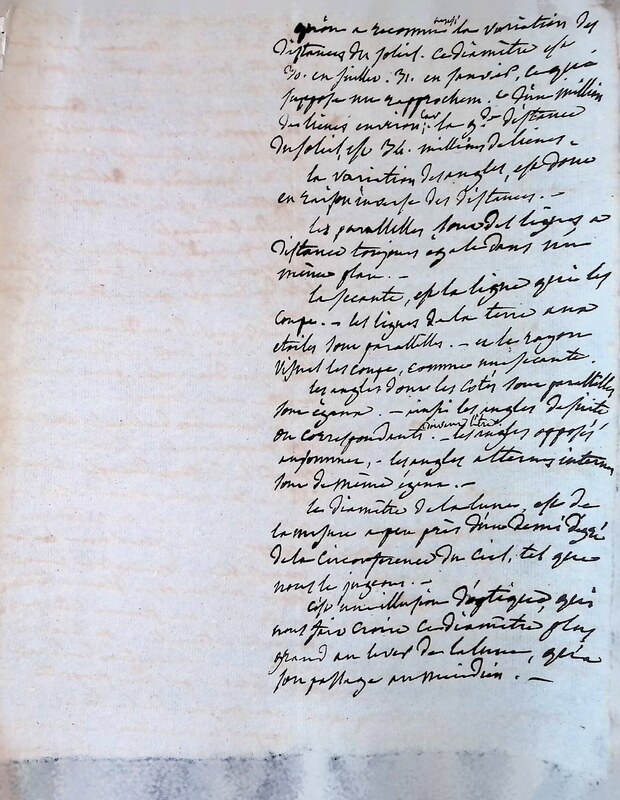 qu'on a reconnu aussi la variation des
distances du soleil. ce diamètre est
30. en juillet. 31. en janvier, ce qui
suppose un rapprochem.t d'un million
de lieues environ, car la g.de distance
du soleil, est 34. millions de lieues.
la variation des angles, est donc
en raison inverse des distances. -
les parallelles sont des lignes a
distance toujours égale dans un
même plan. -
la secante, est la ligne qui les
coupe. - les lignes de la terre aux
etoiles sont parallelles. - et le rayon
visuel les coupe, comme une secante.
les angles dont les cotés sont parallelles
sont égaux. - ainsi les angles de suite
ou correspondants doivent l'être. - les angles opposés
au sommet, - les angles alternes internes
sont de même égaux. -
le diamètre de la lune, est de
la mesure a peu près d'un demi degré
de la circonference du ciel, tel que
nous le jugeons. -
c'est une illusion d'optique, qui
nous fait croire ce diamètre plus
grand au lever de la lune, qu'a
son passage au meridien. -